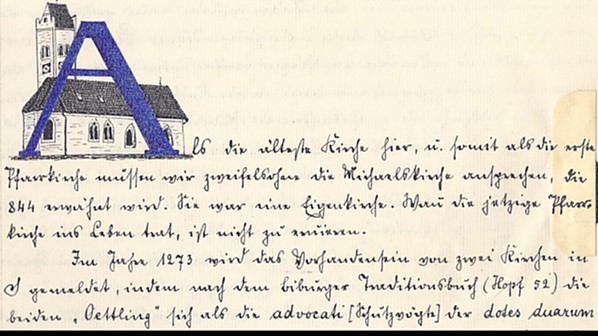 Als die älteste Kirche hier, u. somit als die erste
Pfarrkirche müssen wir zweifelsohne die Michaelskirche ansprechen, die
844 erwähnt wird. Sie war eine Eigenkirche. Wann die jetzige Pfarr-
kirche ins Leben trat, ist nicht zu eruieren.
Im Jahre 1273 wird das Vorhandensein von zwei Kirchen in
O gemeldet, indem nach dem Biburger Traditionsbuch (Hopf 52) die
beiden „Oettling" sich als die advocati [Schutzvögte] der dotes duarum